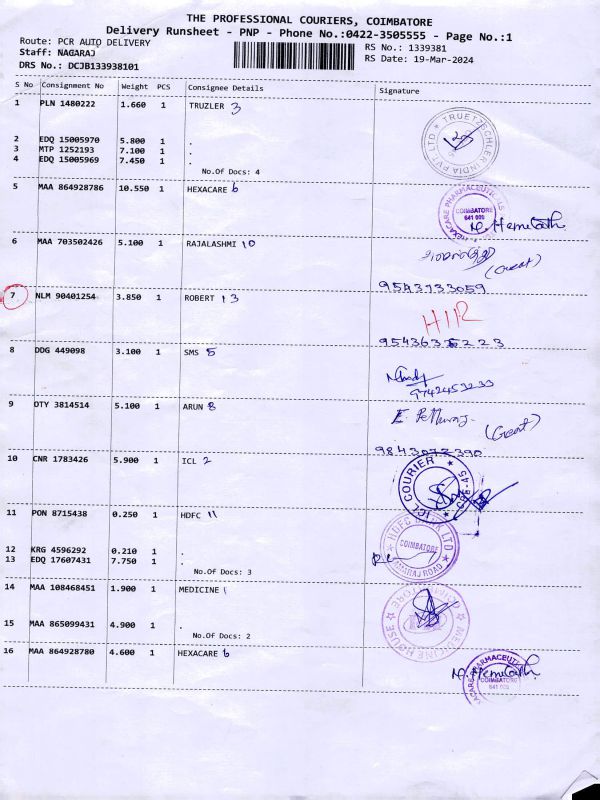 THE PROFESSIONAL COURIERS, COIMBATORE
Delivery Runsheet - PNP - Phone No.:0422-3505555 - Page No.:1
Route: PCR AUTO DELIVERY
RS No.: 1339381
Staff: NAGARAJ
RS Date: 19-Mar-2024
DRS No.: DCJB133938101
S No Consignment No Weight PCS Consignee Details Signature
1 PLN 1480222 1.660 1 TRUZLER 3
TRUETZSCHLER INDIA PVT LTD
2 EDQ 15005970 5.800 1 .
3 MTP 1252193 7.100 1 .
4 EDQ 15005969 7.450 1 .
No.Of Docs: 4
5 MAA 864928786 10.550 1 HEXACARE 6
HEXACARE PHARMACEUTICALS
COIMBATORE
641 006
M. Hemalath
6 MAA 703502426 5.100 1 RAJALASHMI 10
9543733059
7 NLM 90401254 3.850 1 ROBERT 13
HIR
8 DDG 449098 3.100 1 SMS 5
9742453233
9 DTY 3814514 5.100 1 ARUN 8
9843072390
10 CNR 1783426 5.900 1 ICL 2
ICL COURIER
11 PON 8715438 0.250 1 HDFC 11
HDFC BANK LTD
COIMBATORE
12 KRG 4596292 0.210 1 .
13 EDQ 17607431 7.750 1 .
No.Of Docs: 3
14 MAA 108468451 1.900 1 MEDICINE 1
MEDICINE HOUSE
15 MAA 865099431 4.900 1 .
No.Of Docs: 2
16 MAA 864928780 4.600 1 HEXACARE 6
M. Hemalath
COIMBATORE